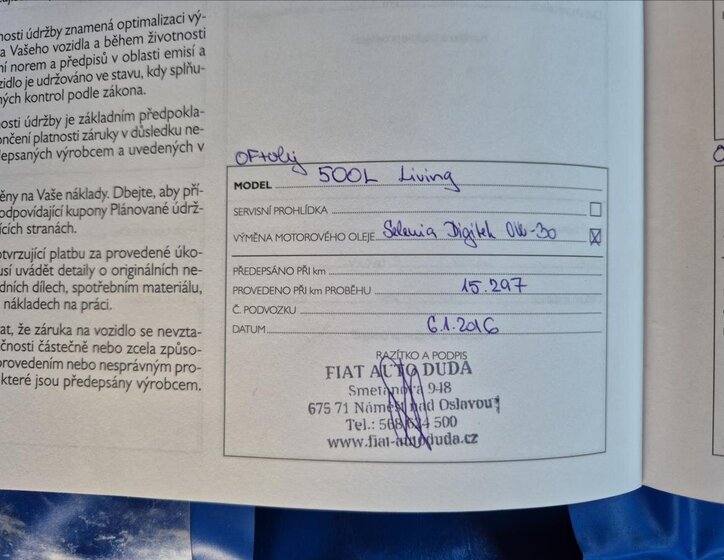 nosti údržby znamená optimalizaci vý-
a Vašeho vozidla a během životnosti
ní norem a předpisů v oblasti emisí a
zidlo je udržováno ve stavu, kdy splňu-
ných kontrol podle zákona.
nosti údržby je základním předpokla-
ončení platnosti záruky v důsledku ne-
depsaných výrobcem a uvedených v
ěny na Vaše náklady. Dbejte, aby pří-
odpovídající kupony Plánované údrž-
ících stranách.
otvrzující platbu za provedené úko-
usí uvádět detaily o originálních ne-
dních dílech, spotřebním materiálu,
nákladech na práci.
at, že záruka na vozidlo se nevzta-
čnosti částečně nebo zcela způso-
provedením nebo nesprávným pro-
které jsou předepsány výrobcem.
MODEL 500L Living
SERVISNÍ PROHLÍDKA
VÝMĚNA MOTOROVÉHO OLEJE Selenia Digitek 0W-30
PŘEDEPSÁNO PŘI km
PROVEDENO PŘI km PROBĚHU 15.297
Č. PODVOZKU
DATUM 6.1.2016
RAZÍTKO A PODPIS
FIAT AUTO DUDA
Smetanova 948
675 71 Náměšť nad Oslavou
Tel.: 568 624 500
www.fiat-autoduda.cz